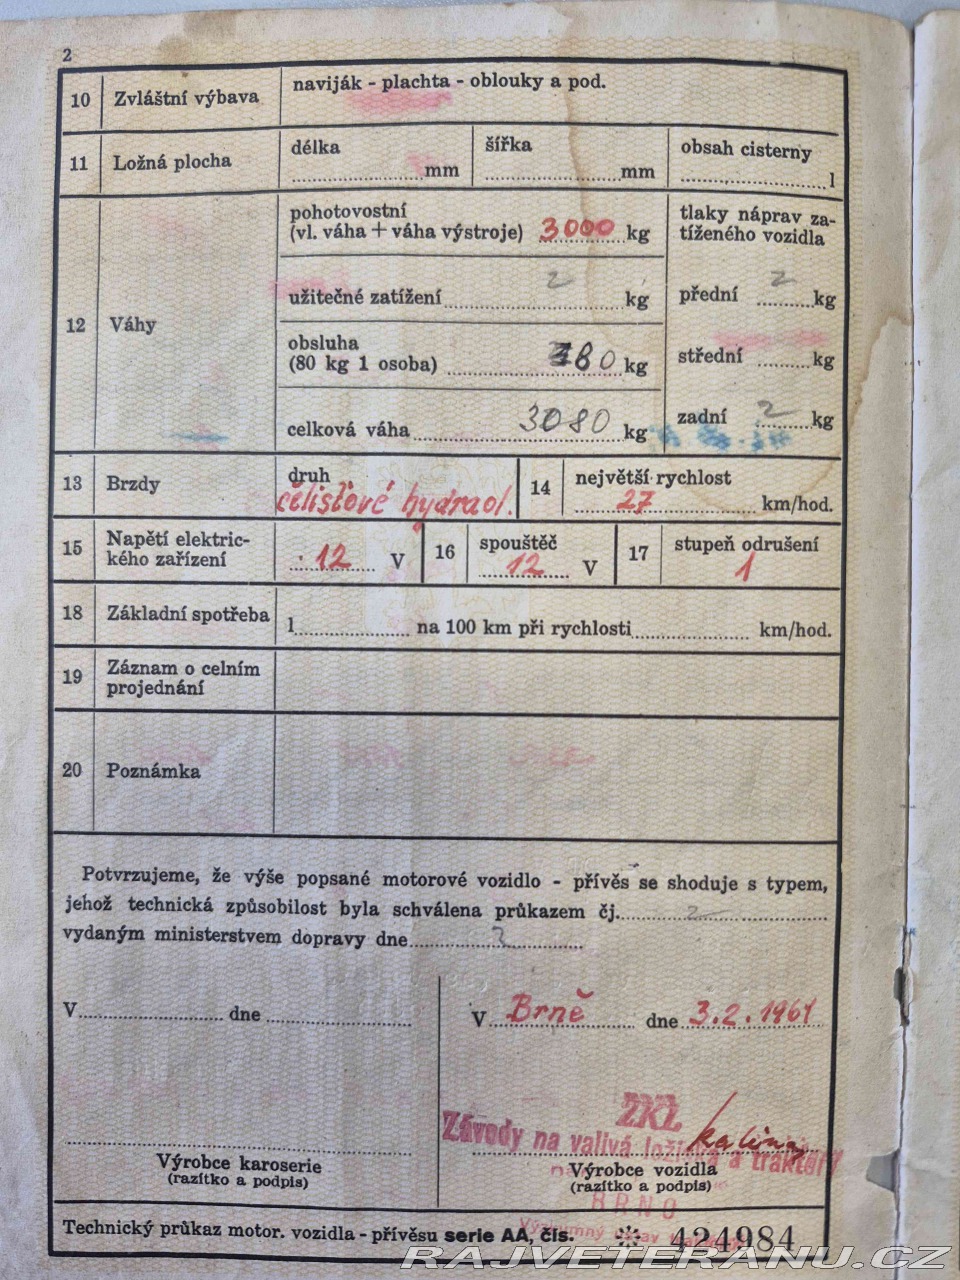 2
10 Zvláštní výbava naviják - plachta - oblouky a pod.
11 Ložná plocha délka mm šířka mm obsah cisterny l
12 Váhy
pohotovostní
(vl. váha + váha výstroje) 3000 kg
užitečné zatížení kg
obsluha
(80 kg 1 osoba) 80 kg
celková váha 3080 kg
tlaky náprav za-
tíženého vozidla
přední kg
střední kg
zadní kg
13 Brzdy druh čelisťové hydraol.
14 největší rychlost
27 km/hod.
15 Napětí elektric-
kého zařízení 12 V
16 spouštěč
12 V
17 stupeň odrušení
1
18 Základní spotřeba l na 100 km při rychlosti km/hod.
19 Záznam o celním
projednání
20 Poznámka
Potvrzujeme, že výše popsané motorové vozidlo - přívěs se shoduje s typem,
jehož technická způsobilost byla schválena průkazem čj.
vydaným ministerstvem dopravy dne
V dne
V Brně dne 3.2.1961
ZKL
Závody na valivá ložiska a traktory
BRNO
Výzkumný
Výrobce karoserie
(razítko a podpis)
Výrobce vozidla
(razítko a podpis)
Technický průkaz motor. vozidla - přívěsu serie AA, čís. 424984
RAJVETERANU.CZ